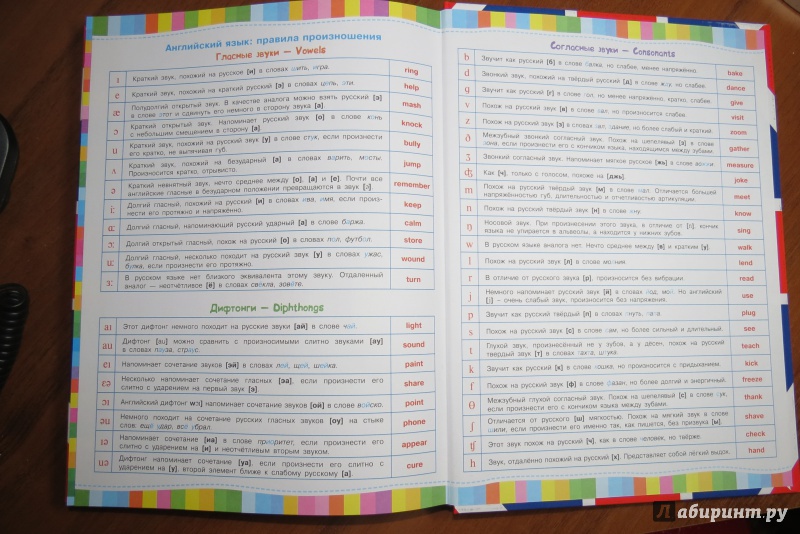 Английский язык: правила произношения
Гласные звуки — Vowels
ɪ Краткий звук, похожий на русское [и] в словах шить, игра. ring
e Краткий звук, похожий на краткий русский [э] в словах цепь, эти. help
æ Полудолгий открытый звук. В качестве аналога можно взять русский [э]
в слове этот и сдвинуть его немного в сторону звука [а]. mash
ɔ Краткий открытый звук. Напоминает русский звук [о] в слове конь
с небольшим смещением в сторону [а]. knock
u Краткий звук, похожий на русский звук [у] в слове стук, если произнести
его кратко, не вытягивая губ. bully
ʌ Краткий звук, похожий на безударный [а] в словах варить, мосты.
Произносится кратко, отрывисто. jump
ə Краткий невнятный звук, нечто среднее между [о], [а] и [е]. Почти все
английские гласные в безударном положении превращаются в звук [ə]. remember
i: Долгий гласный, похожий на русский [и] в словах ива, имя, если произ-
нести его протяжно и напряжённо. keep
ɑ: Долгий гласный, напоминающий русский ударный [а] в слове баржа. calm
ɔ: Долгий открытый гласный, похожий на русский [о] в словах пол, футбол. store
u: Долгий гласный, несколько походит на русский звук [у] в словах ужас,
булка, если произнести его протяжно. wound
ɜ: В русском языке нет близкого эквивалента этому звуку. Отдаленный
аналог — неотчётливое [ё] в словах свёкла, зовёте. turn
Дифтонги — Diphthongs
aɪ Этот дифтонг немного походит на русские звуки [ай] в слове чай. light
au Дифтонг [au] можно сравнить с произносимыми слитно звуками [ау]
в словах пауза, страус. sound
eɪ Напоминает сочетание звуков [эй] в словах лей, щей, шейка. paint
ɛə Несколько напоминает сочетание гласных [эа], если произнести его
слитно с ударением на первый звук [э]. share
ɔɪ Английский дифтонг напоминает сочетание звуков [ой] в слове войско. point
əu Немного походит на сочетание русских гласных звуков [оу] на стыке
слов: ещё удар, всё убрал. phone
ɪə Напоминает сочетание [иа] в слове приоритет, если произнести его
слитно с ударением на [и] и неотчётливым вторым звуком. appear
uə Дифтонг напоминает сочетание [уа], если произнести его слитно с
ударением на [у], второй элемент ближе к слабому русскому [а]. cure
Согласные звуки — Consonants
b Звучит как русский [б] в слове балка, но слабее, менее напряжённо. bake
d Звонкий звук, похожий на твёрдый русский [д] в слове дом, но слабее. dance
g Звучит как русский [г] в слове гол, но менее напряжённо, кратко, слабее. give
v Похож на русский звук [в] в слове вал, но произносится слабее. visit
z Похож на русский звук [з] в словах зал, здание, но более слабый и краткий. zoom
ð Межзубный звонкий согласный звук. Похож на шепелявый [з] в слове
зона, если произнести его с кончиком языка, находящимся между зубами. gather
ʒ Звонкий согласный звук. Напоминает мягкое русское [жь] в слове вожжи. measure
ʤ Как [ч], только с голосом, похоже на [джь]. joke
m Похож на русский твёрдый звук [м] в слове мал. Отличается большей
напряжённостью губ, длительностью и отчетливостью артикуляции. meet
n Похож на русский твёрдый звук [н] в слове ону. know
ŋ Носовой звук. При произнесении этого звука, в отличие от [n], кончик
языка не упирается в альвеолы, а находится у нижних зубов. sing
w В русском языке аналога нет. Нечто среднее между [в] и кратким [у]. walk
l Похож на русский звук [л] в слове молния. lend
r В отличие от русского звука [р], произносится без вибрации. read
j Немного напоминает русский звук [й] в словах йод, мой. Но английский
[j] – очень слабый звук, произносится без напряжения. use
p Звучит как русский твёрдый [п] в словах пнуть, папа. plug
s Похож на русский звук [с] в слове сам, но более сильный и длительный. see
t Глухой звук, произнесённый не у зубов, а у дёсен, похож на русский
твёрдый звук [т] в словах тахта, штука. teach
k Звучит как русский [к] в слове кошка, но произносится с придыханием. kick
f Похож на русский [ф] в слове фазан, но более долгий и энергичный. freeze
θ Межзубный глухой согласный звук. Похож на шепелявый [с] в слове сок,
если произнести его с кончиком языка между зубами. thank
ʃ Отличается от русского [ш] мягкостью. Похож на мягкий звук в слове
шили, если произнести его именно так, как пишется, без призвука [ы]. shave
ʧ Этот звук похож на русский [ч], как в слове человек, но твёрже. check
h Звук, отдалённо похожий на русский [х]. Представляет собой лёгкий выдох. hand
Лабиринт.ру